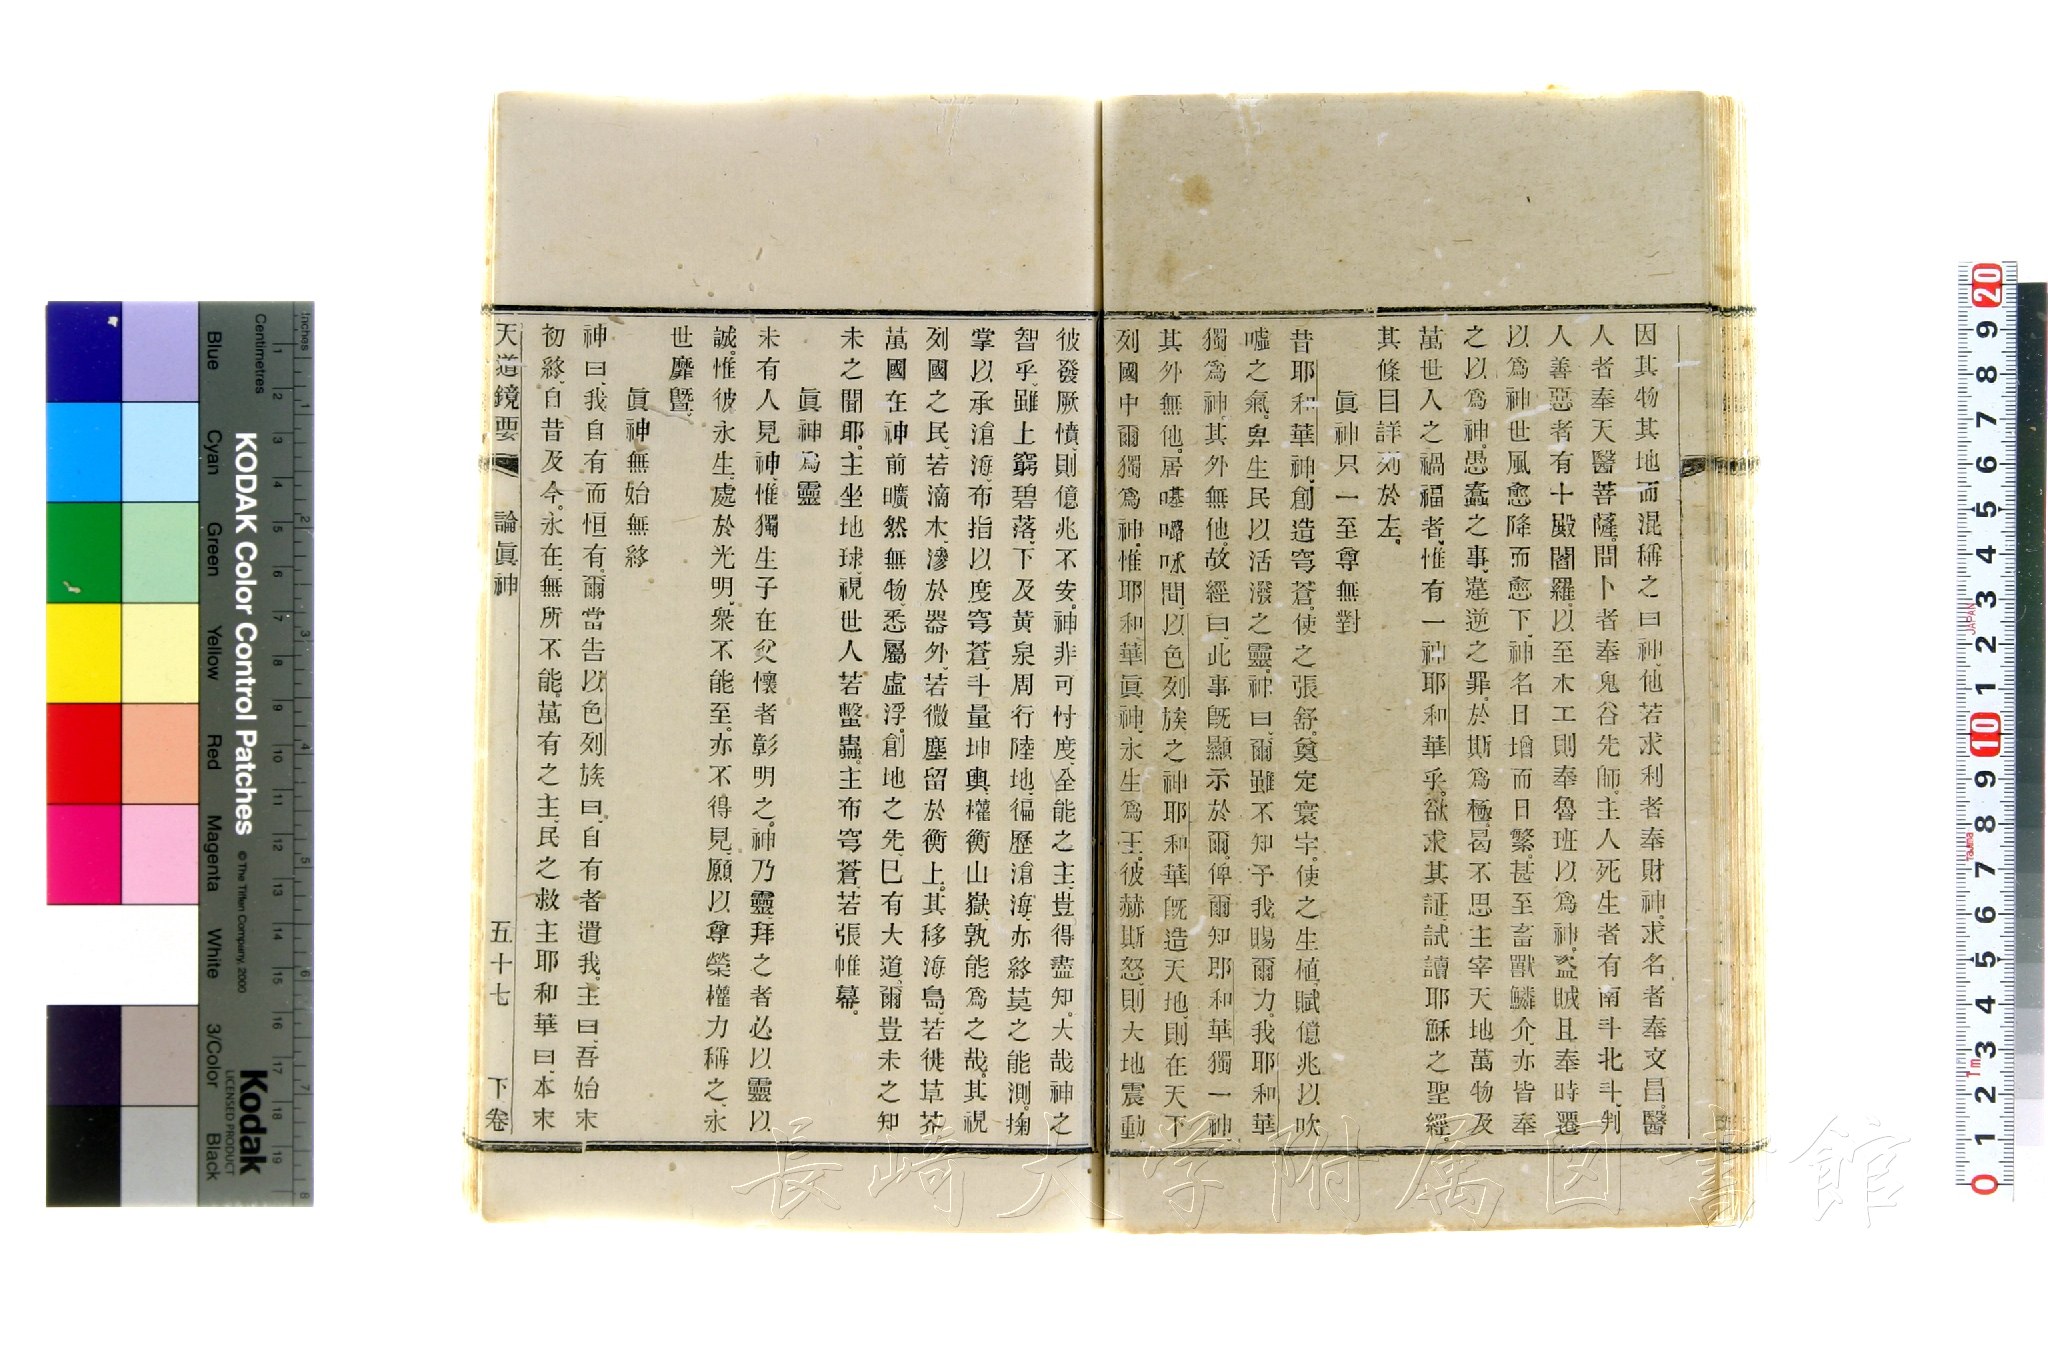 因其物其地而混稱之曰神、他若求利者奉財神。求名者奉文昌。醫
人者奉天醫菩薩。問卜者奉鬼谷先師。主人死生者有南斗北斗。判
人善惡者有十殿閻羅。以至木工則奉魯班以爲神。盜賊且奉時遷
以爲神世風愈降而愈下、神名日增而日繁。甚至畜獸鱗介、亦皆奉
之以爲神。愚蠢之事、違逆之罪、於斯爲極。曷不思主宰天地萬物及
萬世人之禍福者、惟有一神耶和華乎。欲求其証、試讀耶穌之聖經。
其條目詳列於左。
眞神只一至尊無對
昔耶和華神、創造穹蒼。使之張舒。奠定寰宇。使之生植、賦億兆以吹
噓之氣。畀生民以活潑之靈。神曰、爾雖不知予我賜爾力。我耶和華
獨爲神、其外無他。故經曰、此事旣顯示於爾。俾爾知耶和華獨一神
其外無他。居嘰嚕咪間、以色列族之神耶和華旣造天地、則在天下
列國中爾獨爲神。惟耶和華眞神、永生爲王。彼赫斯怒、則大地震動
彼發厥憤、則億兆不安。神非可忖度、全能之主、豈得盡知。大哉神之
智乎、雖上窮碧落、下及黃泉周行陸地、徧歷滄海、亦終莫之能測。掬
掌以承滄海、布指以度穹蒼、斗量坤輿、權衡山嶽、孰能爲之哉。其視
列國之民若滴水滲於器外、若微塵留於衡上。其移海島、若徙草芥
萬國在神前曠然無物、悉屬虛浮。創地之先、已有大道、爾豈未之知
未之聞耶。主坐地球、視世人若螿蟲。主布穹蒼、若張帷幕。
眞神爲靈
未有人見神、惟獨生子在父懷者彰明之。神乃靈、拜之者必以靈以
誠。惟彼永生、處於光明、衆不能至。亦不得見、願以尊榮權力稱之、永
世靡曁、
眞神無始無終
神曰、我自有而恒有、爾當告以色列族曰、自有者遣我。主曰、吾始末
初終、自昔及今。永在、無所不能。萬有之主、民之救主耶和華曰、本末
天道鏡要 論眞神 五十七 下卷
KODAK Color Control Patches
© The Tiffen Company, 2000
Kodak
LICENSED PRODUCT
Inches
Centimetres
Blue
Cyan
Green
Yellow
Red
Magenta
White
3/Color
Black
JAPAN
長崎大学附属図書館